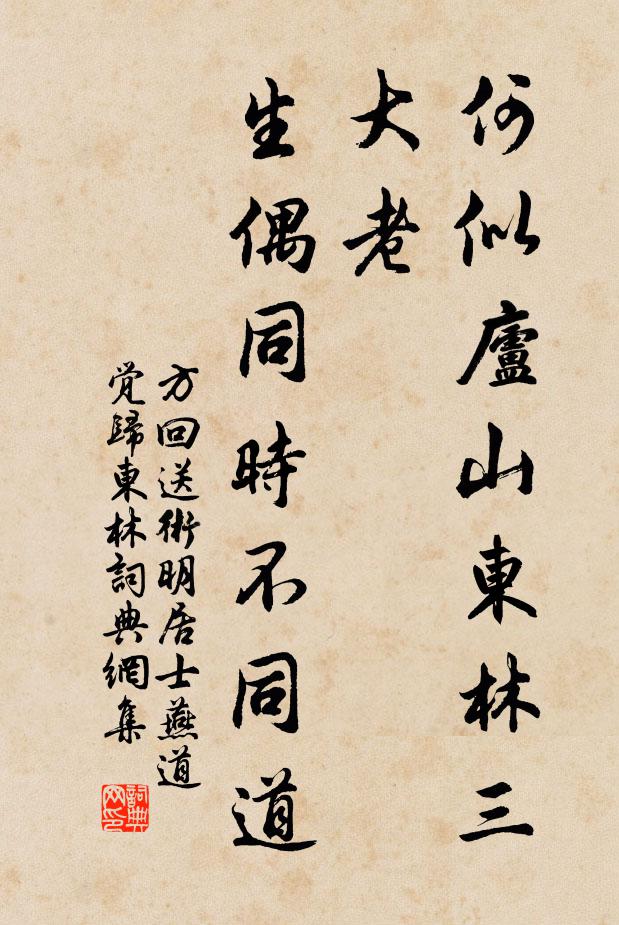 何似廬山東林三
大老
生偶同時不同道
方回送術明居士燕道
覚歸東林詞典網集
詞典网印